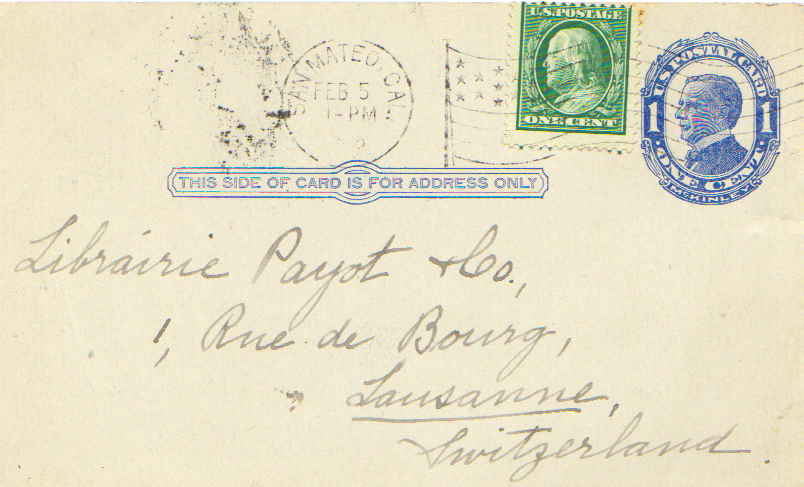 U.S.POSTAGE
ONE CENT
SAN MATEO, CAL.
FEB 5
1-PM
U.S. POSTAL CARD
1 1
ONE CENT
McKINLEY
THIS SIDE OF CARD IS FOR ADDRESS ONLY
Librairie Payot & Co.,
1, Rue de Bourg,
Lausanne,
Switzerland.